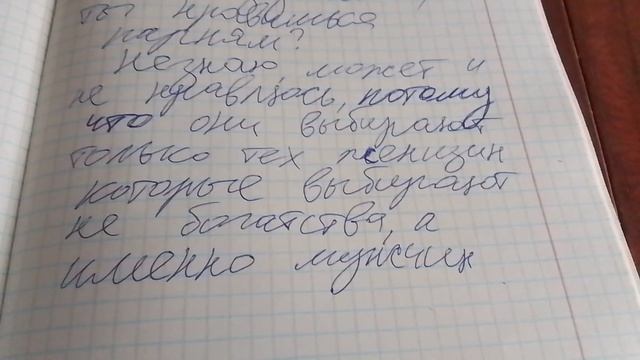 ты нравишься
парням?
Незнаю, может и
не нравлюсь, потому
что они выбирают
только тех женщин
которые выбирают
не богатства, а
именно мужчин